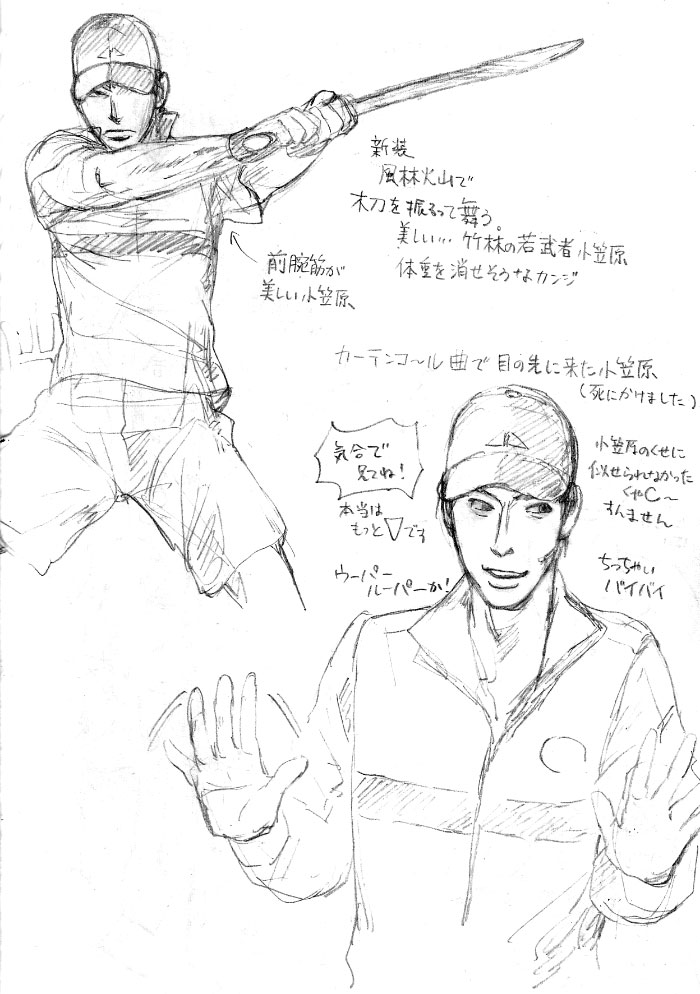 新装
風林火山で
木刀を振るって舞う。
美しい… 竹林の若武者 小笠原
体重を消せそうなカンジ
前腕筋が
美しい小笠原、
カーテンコール曲で目の先に来た小笠原
(死にかけました)
気合で
見てね!
本当は
もっと▽です
ウーパー
ルーパーか!
小笠原のくせに
似せられなかった
くやC〜
すんません
ちっちゃい
バイバイ